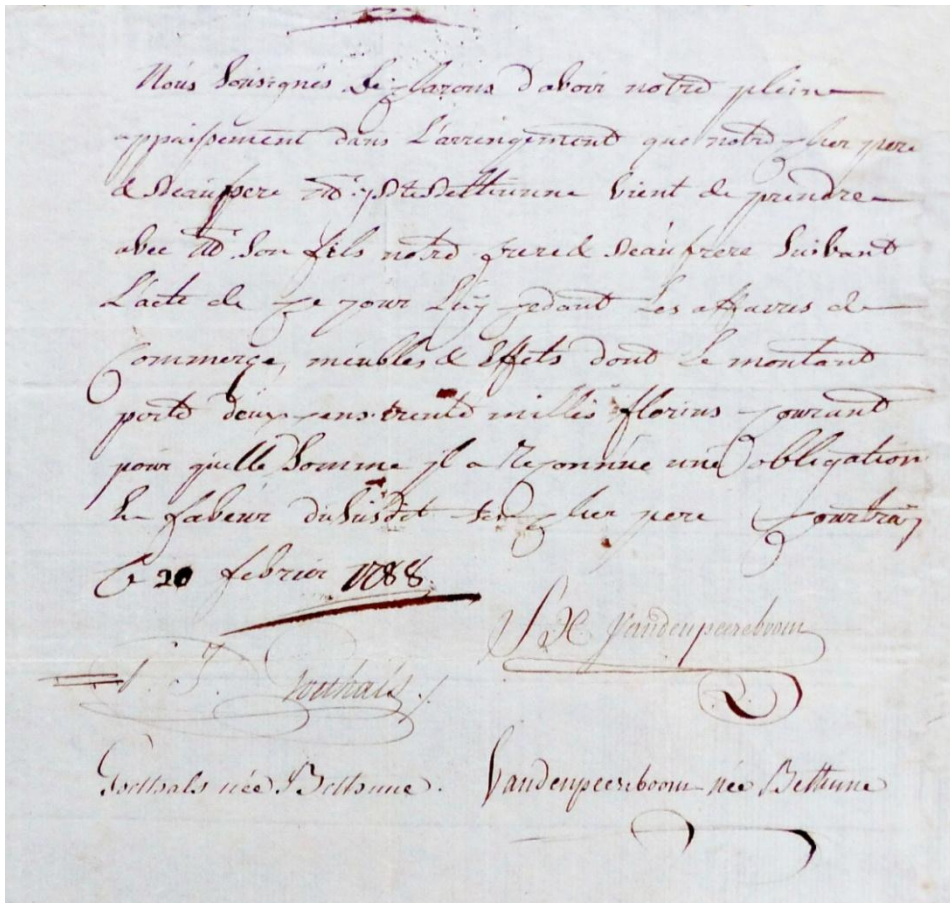 Nous Sousignés declarons d'avoir notre plein
appaisement dans L'arrengement que notre cher pere
& Beaupere Mr. Bethunne vient de prendre
avec Mr. Son fils notre frere & Beaufrere Suivant
L'acte de ce jour Luy cedant Les affaires de
Commerçe, meubles & Effets dont Le montant
porte deux cens trente mille florins courant
pour quelle Somme jl a reconnüe une obligation
en faveur du Susdit cher pere Courtray
Ce 20 febrier 1788.
Vandenpeereboom
Goethals née Bethune. Vandenpeereboom née Bethune